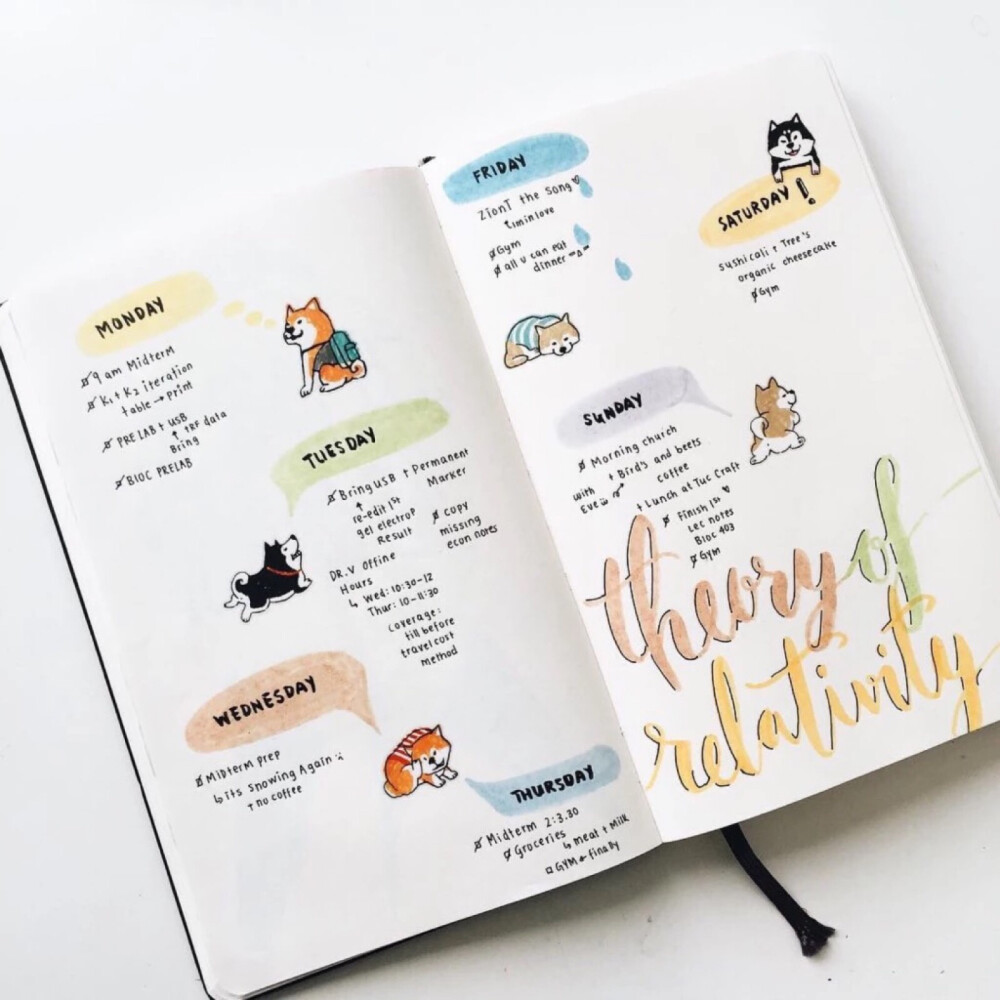 MONDAY
9 am Midterm
K1 + K2 iteration
table → Print
PRE LAB + USB
↑ IRF data
Bring
BIOC PRELAB
TUESDAY
Bring USB + Permanent
Marker
↑
re-edit 1st
gel electrop
Result
copy
missing
econ notes
DR.V Offine
Hours
↳ Wed: 10:30-12
Thur: 10-11:30
coverage:
till before
travel cost
method
WEDNESDAY
Midterm prep
↳ its snowing Again
↑ no coffee
THURSDAY
Midterm 2:3.30
Groceries
↳ meat + Milk
GYM ← finally
FRIDAY
ZionT the song ♥
↑ im in love
Gym
all u can eat
dinner
SATURDAY!
sushi cali + Tree's
organic cheesecake
Gym
SUNDAY
Morning church
with + Birds and beets
Eve coffee
+ Lunch at Tuc Craft
Finish 1st ♥
Lec notes
Bioc 403
Gym
theory of
relativity